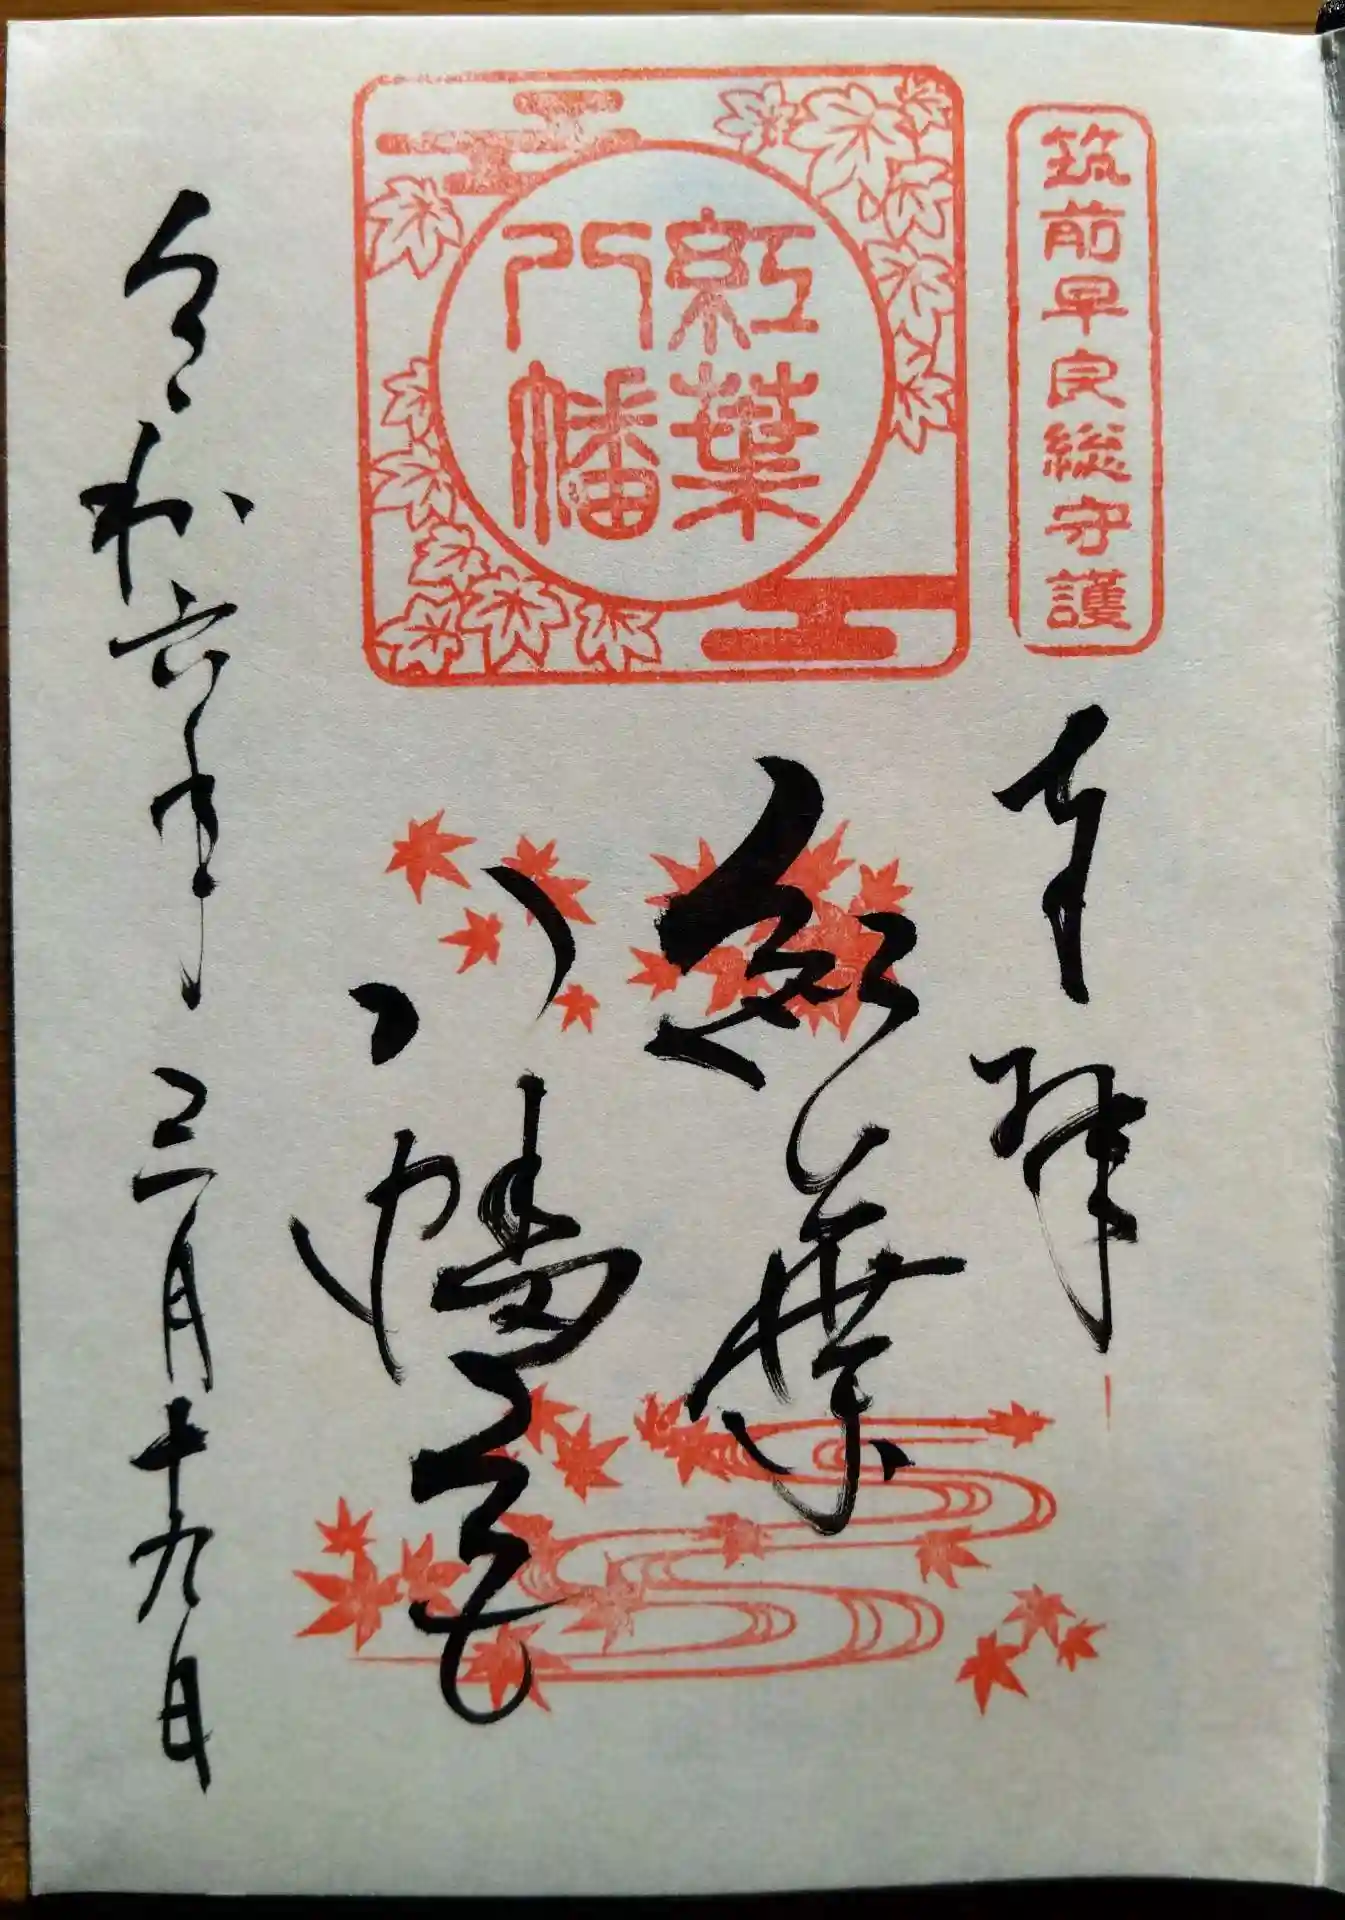 筑前早良総守護
奉拝
紅葉
八幡
紅葉
八幡宮
令和六年三月十九日